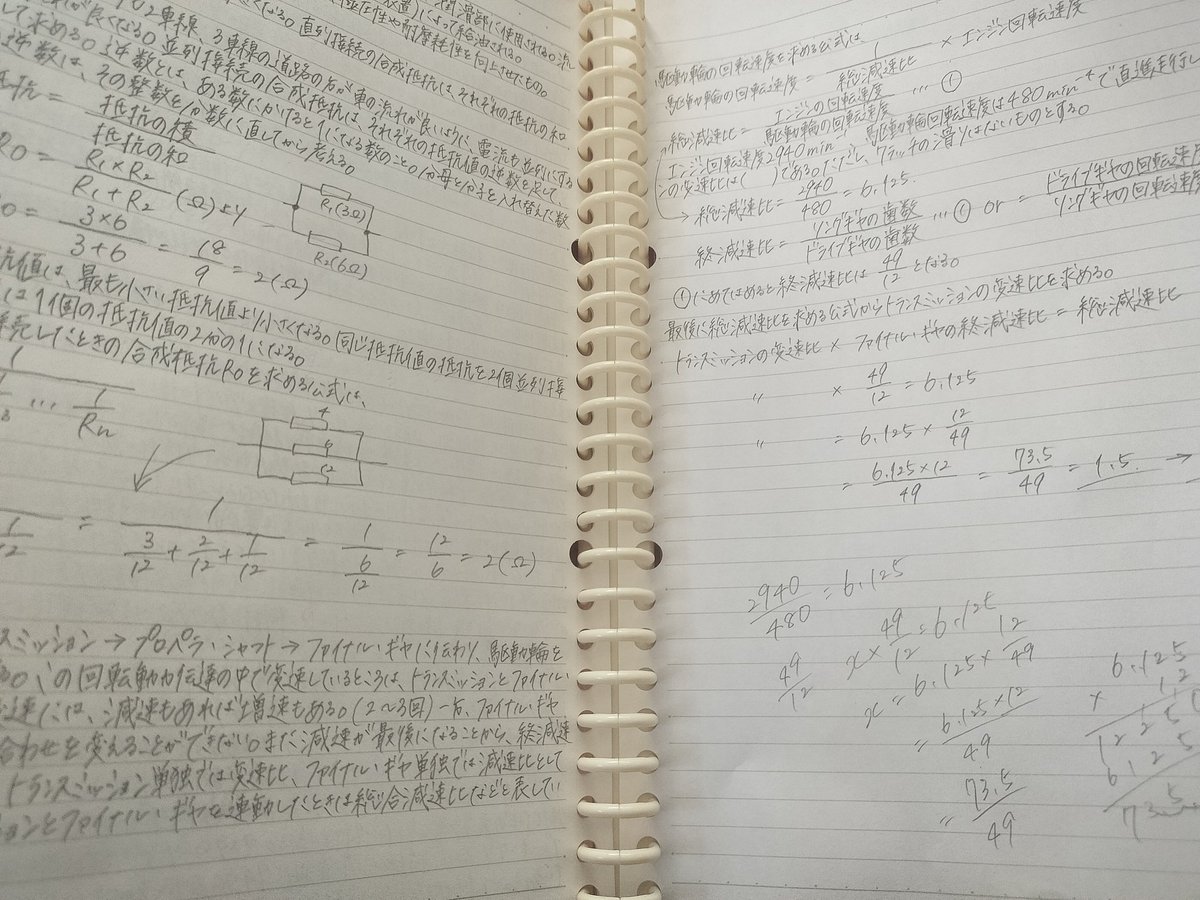 によって給油される。
直列接続の合成抵抗は、それぞれの抵抗の和
2車線、3車線の道路の方が車の流れが良いように、電流も並列にする
が良くなる。並列接続の合成抵抗は、それぞれの抵抗値の逆数を足して、
して求める。逆数とは、ある数にかけると1になる数のこと。分母と分子を入れ替えた数
逆数は、その整数を分数に直してから考える。
抵抗 = 抵抗の積 / 抵抗の和
R0 = R1 × R2 / R1 + R2 (Ω)より
R1(3Ω)
R2(6Ω)
= 3×6 / 3+6 = 18/9 = 2(Ω)
抗値は、最も小さい抵抗値より小さくなる。同じ抵抗値の抵抗を2個並列接
は1個の抵抗値の2分の1になる。
接続したときの合成抵抗R0を求める公式は、
1
… 1/Rn
4
6
12
1/12 = 1 / 3/12 + 2/12 + 1/12 = 1 / 6/12 = 12/6 = 2(Ω)
スミッション→プロペラ・シャフト→ファイナル・ギヤに伝わり、駆動輪を
の回転動力伝達の中で変速しているところは、トランスミッションとファイナル
変速には、減速もあれば増速もある。(2~3回) 一方、ファイナル・ギヤ
合わせを変えることができない。また減速が最後になることから、終減速
トランスミッション単独では変速比、ファイナル・ギヤ単独では減速比として
ションとファイナル・ギヤを連動したときは総合減速比などと表してい
駆動輪の回転速度を求める公式は、
駆動輪の回転速度 = 1 / 総減速比 × エンジン回転速度
総減速比 = エンジンの回転速度 / 駆動輪の回転速度 … ①
エンジン回転速度2940min 駆動輪回転速度は480min⁻¹で直進走行し
の変速比は( )である。ただし、クラッチの滑りはないものとする。
総減速比 = 2940/480 = 6.125
終減速比 = リングギヤの歯数 / ドライブギヤの歯数 … ① or = ドライブギヤの回転速度 / リングギヤの回転速度
①にあてはめると終減速比は 49/12 となる。
最後に総減速比を求める公式からトランスミッションの変速比を求める。
トランスミッションの変速比 × ファイナル・ギヤの終減速比 = 総減速比
〃 × 49/12 = 6.125
〃 = 6.125 × 12/49
= 6.125×12 / 49 = 73.5/49 = 1.5 →
2940/480 = 6.125
49/12
x × 49/12 = 6.125
x = 6.125 × 12/49
= 6.125×12 / 49
= 73.5/49
6.125
× 12
12250
6125
73.5